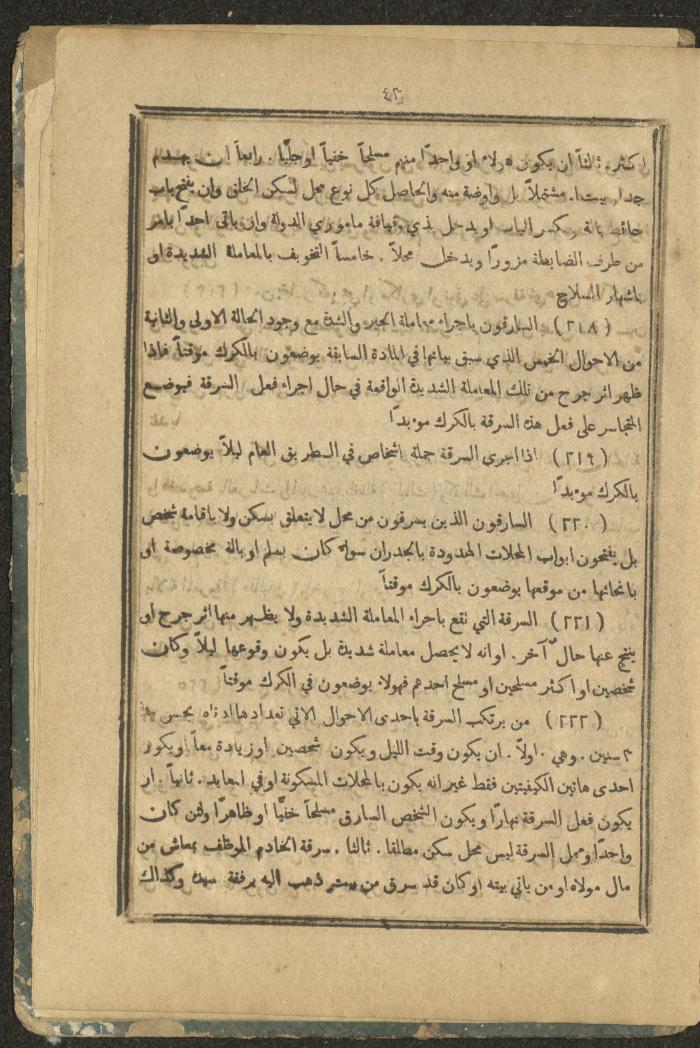 ٤٢
اكثر. ثالثاً ان يكون هولاء او واحدًا منهم مسلحاً خفياً او جليًا. رابعاً ان بهدم
جدار بيت مشتملاً بل واوضة منه والحاصل كل نوع محل لسكن الخلق وان يفتح باب
حائط بالة وبكسر الباب او يدخل بذي وقيافة ماموري الدولة وان ياتى احدًا بامر
من طرف الضابطة مزورًا ويدخل محلاً. خامساً التخويف بالمعاملة الشديدة او
باشهار السلاح
(٢١٨) السارقون باجراء معاملة الجبر والشدة مع وجود الحالة الاولى والثانية
من الاحوال الخمس الذي سبق بيانها في المادة السابقة يوضعون بالكرك موقتاً فاذا
ظهر اثر جرح من تلك المعاملة الشديدة الواقعة في حال اجراء فعل السرقة فيوضع
المتجاسر على فعل هذه السرقة بالكرك موبدًا
(٢١٩) اذا اجرى السرقة جملة اشخاص في الطريق العام ليلاً يوضعون
بالكرك موبدًا
(٢٢٠) السارقون الذين يسرقون من محل لا يتعلق بسكن ولا باقامة شخص
بل يفتحون ابواب المحلات المحدودة بالجدران سواء كان بسلم او بالة مخصوصة او
بانحائها من موقعها يوضعون بالكرك موقتاً
(٢٢١) السرقة التي تقع باجراء المعاملة الشديدة ولا يظهر منها اثر جرح او
ينتج عنها حالٌ آخر. او انه لا يحصل معاملة شديدة بل يكون وقوعها ليلاً وكان
شخصين او اكثر مسلحين او مسلح احدهم فهولاء يوضعون في الكرك موقتاً
(٢٢٢) من يرتكب السرقة باحدى الاحوال الاتي تعدادها ادناه يحبس
٣ سنين. وهي. اولاً. ان يكون وقت الليل ويكون شخصين او زيادة معاً او يكون
احدى هاتين الكيفيتين فقط غير انه يكون بالمحلات المسكونة او في المعابد. ثانياً. ان
يكون فعل السرقة نهارًا ويكون الشخص السارق مسلحاً خفيًا او ظاهرًا ولئن كان
واحدًا ومحل السرقة ليس محل سكن مطلقا. ثالثا. سرقة الخادم الموظف بمعاش من
مال مولاه او من ياتي بيته او كان قد سرق من ذهب اليه برفقة سيده وكذلك